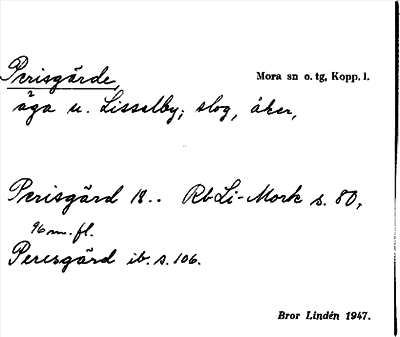 Perisgärde,
Mora sn o. tg, Kopp. l.
äga u. Lisselby; slog, åker,
Perisgärd 18.. Rb Li-Mork s. 80,
96 m. fl.
Perisgärd ib. s. 106.
Bror Lindén 1947.